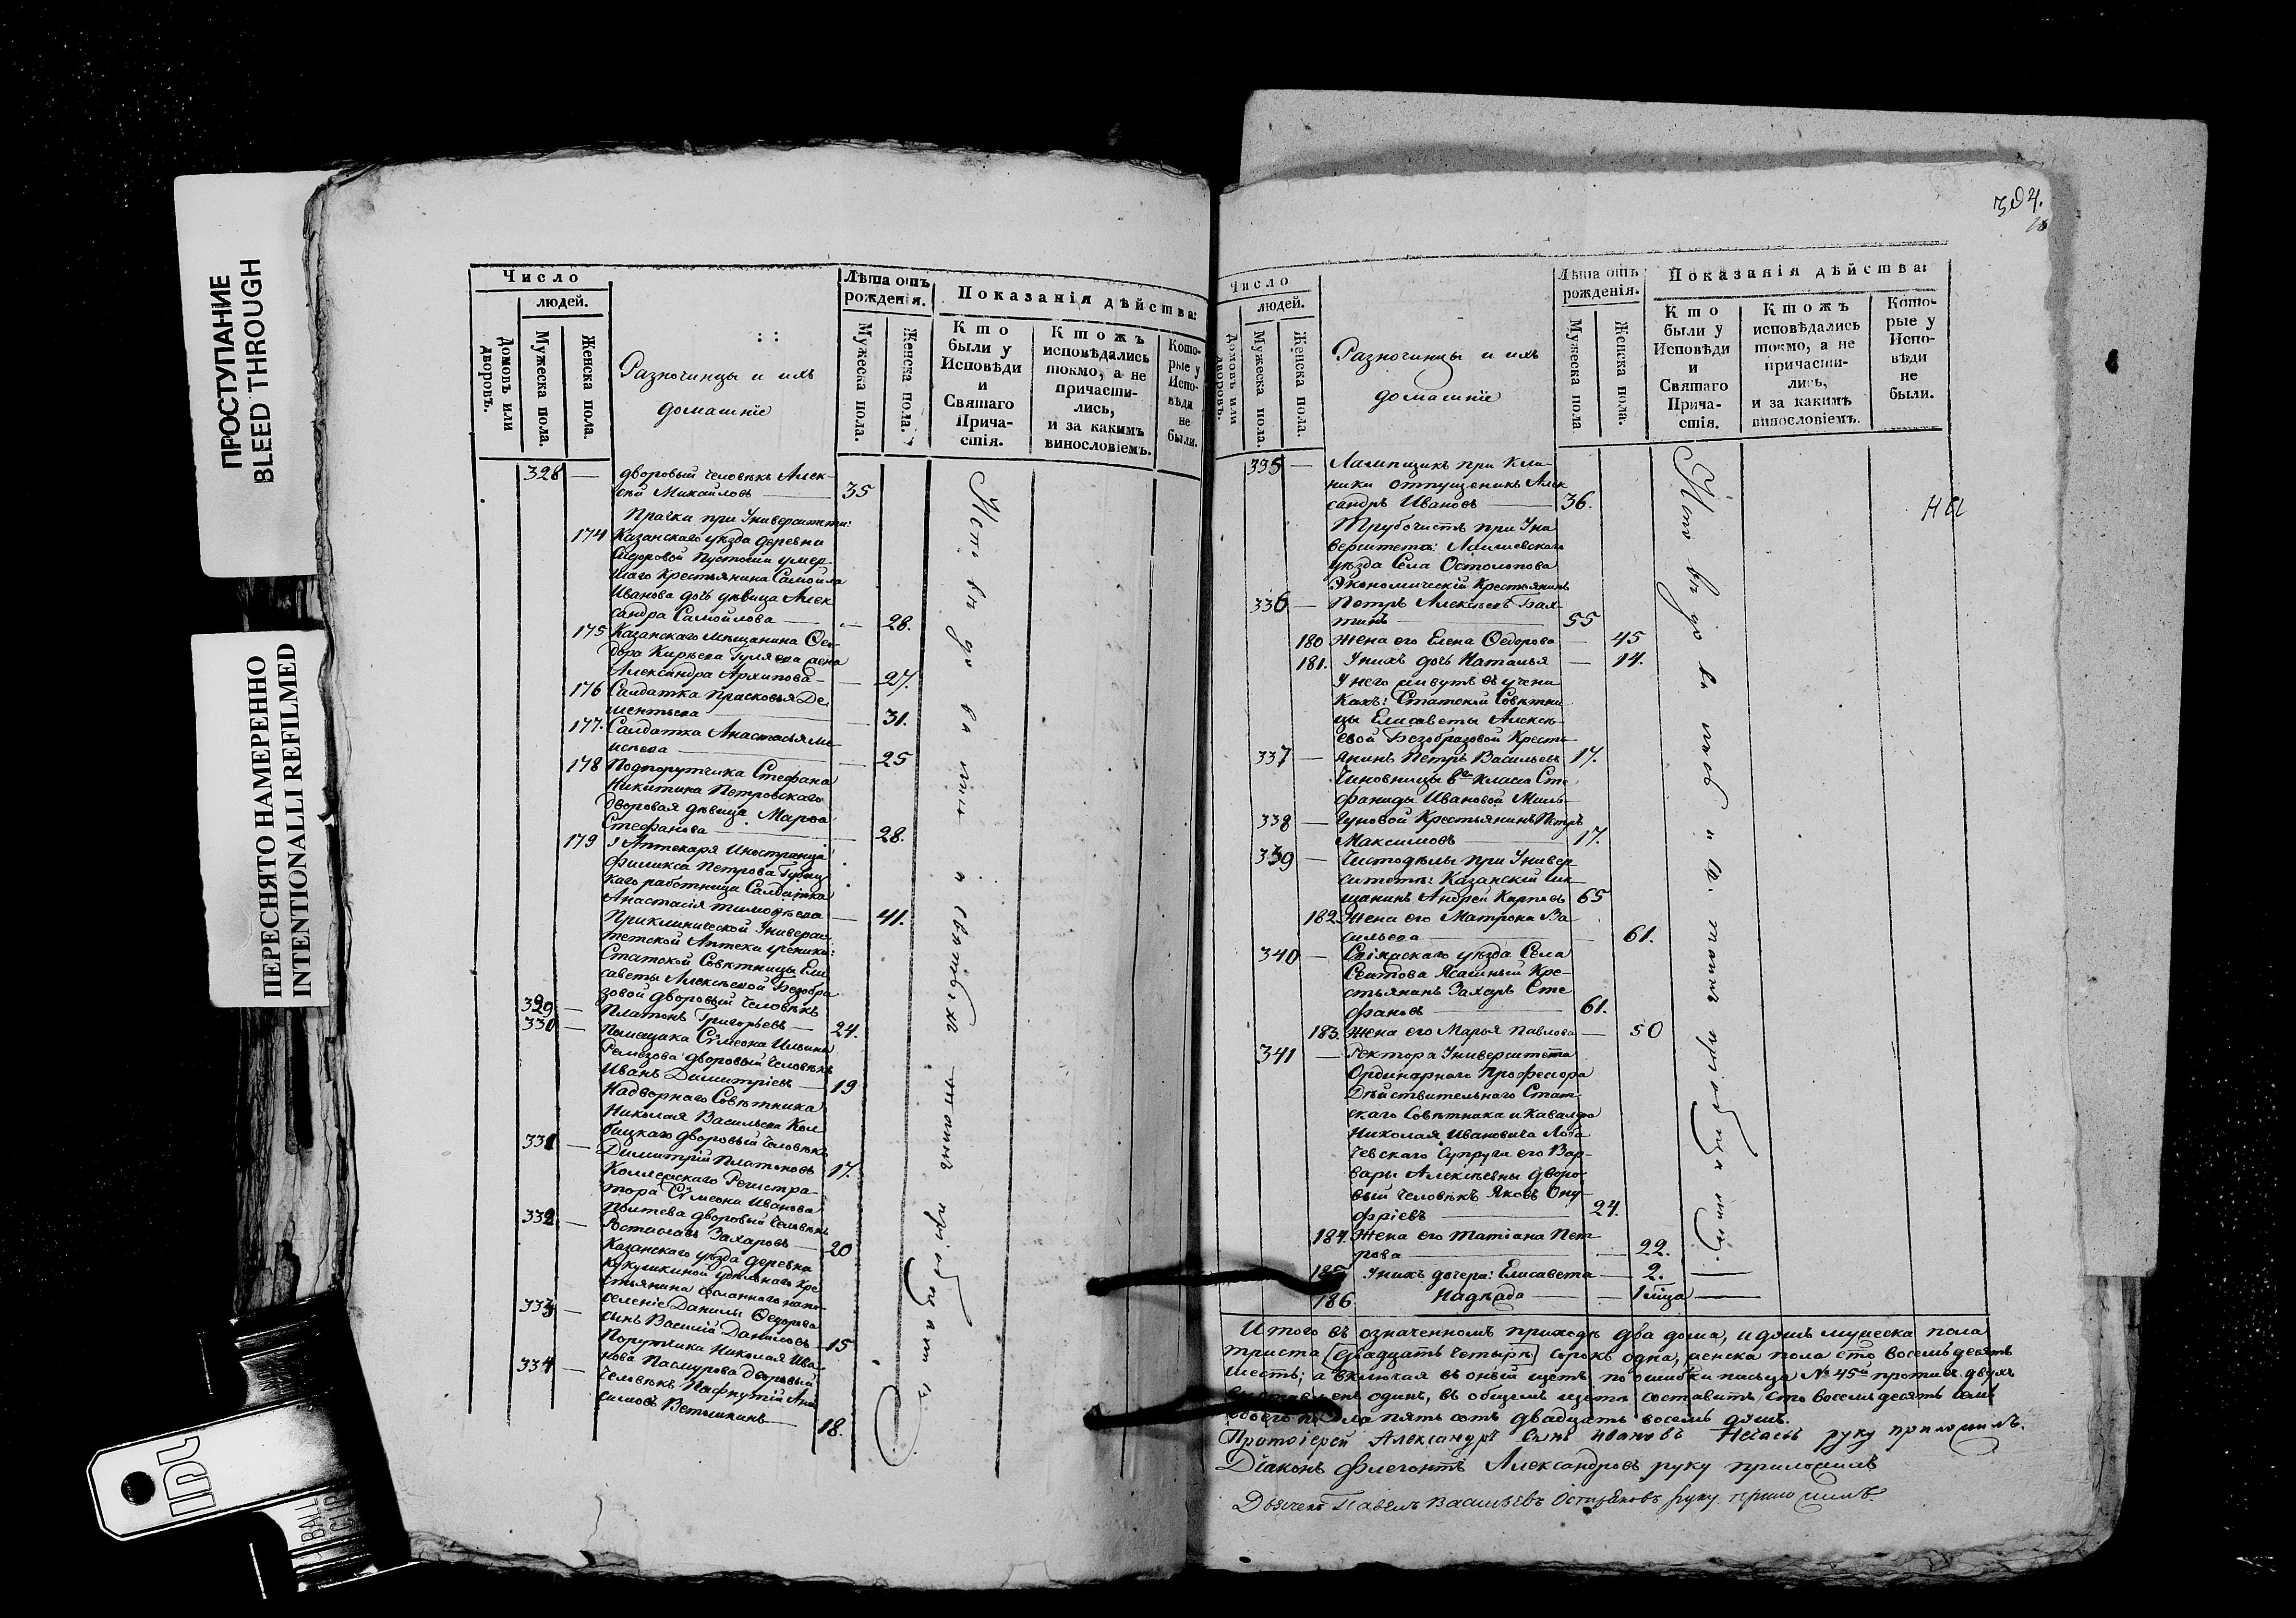 ПРОСТУПАНИЕ
BLEED THROUGH
ПЕРЕСНЯТО НАМЕРЕННО
INTENTIONALLI REFILMED
Число
людей.
Домовъ или дворовъ.
Мужеска пола.
Женска пола.
Разночинцы и ихъ
домашніе
Лѣта отъ
рожденія.
Мужеска пола.
Женска пола.
Показанія дѣйства:
Кто
были у
Исповѣди
и
Святаго
Прича-
стія.
Ктожъ
исповѣдались
токмо, а не
причасти-
лись,
и за какимъ
винословіемъ.
Кото-
рые у
Испо-
вѣди
не
были.
328 — дворовый человѣкъ Алек-
сѣй Михайловъ — 35
Прачки при Университетѣ:
174 Казанскаго уѣзда деревни
Сидоровой Пустоши умер-
шаго Крестьянина Самойла
Иванова дочь дѣвица Алек
сандра Самойлова — 28.
175 Казанскаго мѣщанина Ѳео-
дора Кирѣева Гуляева жена
Александра Архипова — 27.
176 Салдатка Прасковья Де-
ментьева — 31.
177. Салдатка Анастасья
— 25
178 Подпорутчика Стефана
Никитина Петровскаго
дворовая дѣвица Марѳа
Стефанова — 28.
179 У Аптекаря Иностранца
Филикса Петрова
работница Салдатка
Анастасія Тимоѳѣева — 41.
При клинической Универси-
тетской Аптеки ученики:
Статской Совѣтницы Ели
саветы Алексѣевой Безобра
зовой дворовый человѣкъ
329 — Платонъ Григорьевъ — 24.
330 — Помѣщика Сѵмеона Ильина
Ремезова дворовый человѣкъ
Иванъ Димитріевъ — 19
Надворнаго Совѣтника
Николая Васильева Кол
бецкаго дворовый человѣкъ
331 — Димитрій Платоновъ 17.
Коллежскаго Регистра-
тора Сѵмеона Иванова
дворовый человѣкъ
332 — Ростиславъ Захаровъ — 20
Казанскаго уѣзда деревни
Кукушкиной удѣльнаго кре
стьянина сосланнаго на по-
селеніе Данилы Ѳедорова
333 — сынъ Василій Даниловъ — 15
Порутчика Николая Ива
нова Пасмурова дворовый
334 — человѣкъ Пафнутій Ани
симовъ Ветошкинъ — 18.
304.
Число
людей.
Домовъ или дворовъ.
Мужеска пола.
Женска пола.
Разночинцы и ихъ
домашніе
Лѣта отъ
рожденія.
Мужеска пола
Женска пола.
Показанія дѣйства:
Кто
были у
Исповѣди
и
Святаго
Прича-
стія.
Ктожъ
исповѣдались
токмо, а не
причасти-
лись,
и за какимъ
винословіемъ.
Кото-
рые у
Испо-
вѣди
не
были.
335 — Лампщикъ при Кли-
ники отпущеникъ Алек
сандръ Ивановъ — 36.
Трубочистъ при Уни
верситетѣ: Лаишевскаго
уѣзда Села Остолопова
Экономическій Крестьянинъ
336 — Петръ Алексѣевъ Бах-
тинъ — 55
180 Жена его Елена Ѳедорова — 45
181. У нихъ дочь Наталья — 14.
У него живутъ въ учени
кахъ: Статской Совѣтни
цы Елисаветы Алексѣ-
евой Безобразовой Кресть-
337 — янинъ Петръ Васильевъ 17.
Чиновницы 8го класса Сте
фаниды Ивановой Миль-
338 — гуновой Крестьянинъ Петръ
Максимовъ — 17.
339 — Чистодѣлы при Универ
ситетѣ: Казанскій мѣ
щанинъ Андрей Карповъ 65
182. Жена его Матрона Ва
сильева — 61.
340 — Свіяжскаго уѣзда Села
Сеитова Ясашный Кре-
стьянинъ Захаръ Сте
фановъ — 61.
183. Жена его Марья Павлова — 50
341 — Ректора Университета
Ординарнаго Профессора
Дѣйствительнаго Стат
скаго Совѣтника и Кавалера
Николая Ивановича Лоба
чевскаго Супруги его Вар-
вары Алексѣевны дворо
вый человѣкъ Яковъ Ону
фріевъ — 24.
184. Жена его Татіана Пет
рова — 22.
185 У нихъ дочери: Елисавета — 2. —
186. Надѣжда — 1 мѣца —
Итого въ означенномъ приходѣ два дома, и душъ мужеска пола
триста (двадцать четыре) сорокъ одна, женска пола сто восемьдесятъ
шесть; а включая въ оный щетъ по ошибки писца № 45й противъ двухъ
одинъ, въ общемъ щетѣ составитъ сто восемьдесятъ семь
обоего пола пять сотъ двадцать восемь душъ.
Протоіерей Александръ сынъ Ивановъ Нечаевъ руку приложилъ.
Діаконъ Флегонтъ Александровъ руку приложилъ
Дьячекъ Павелъ Васильевъ руку приложилъ.